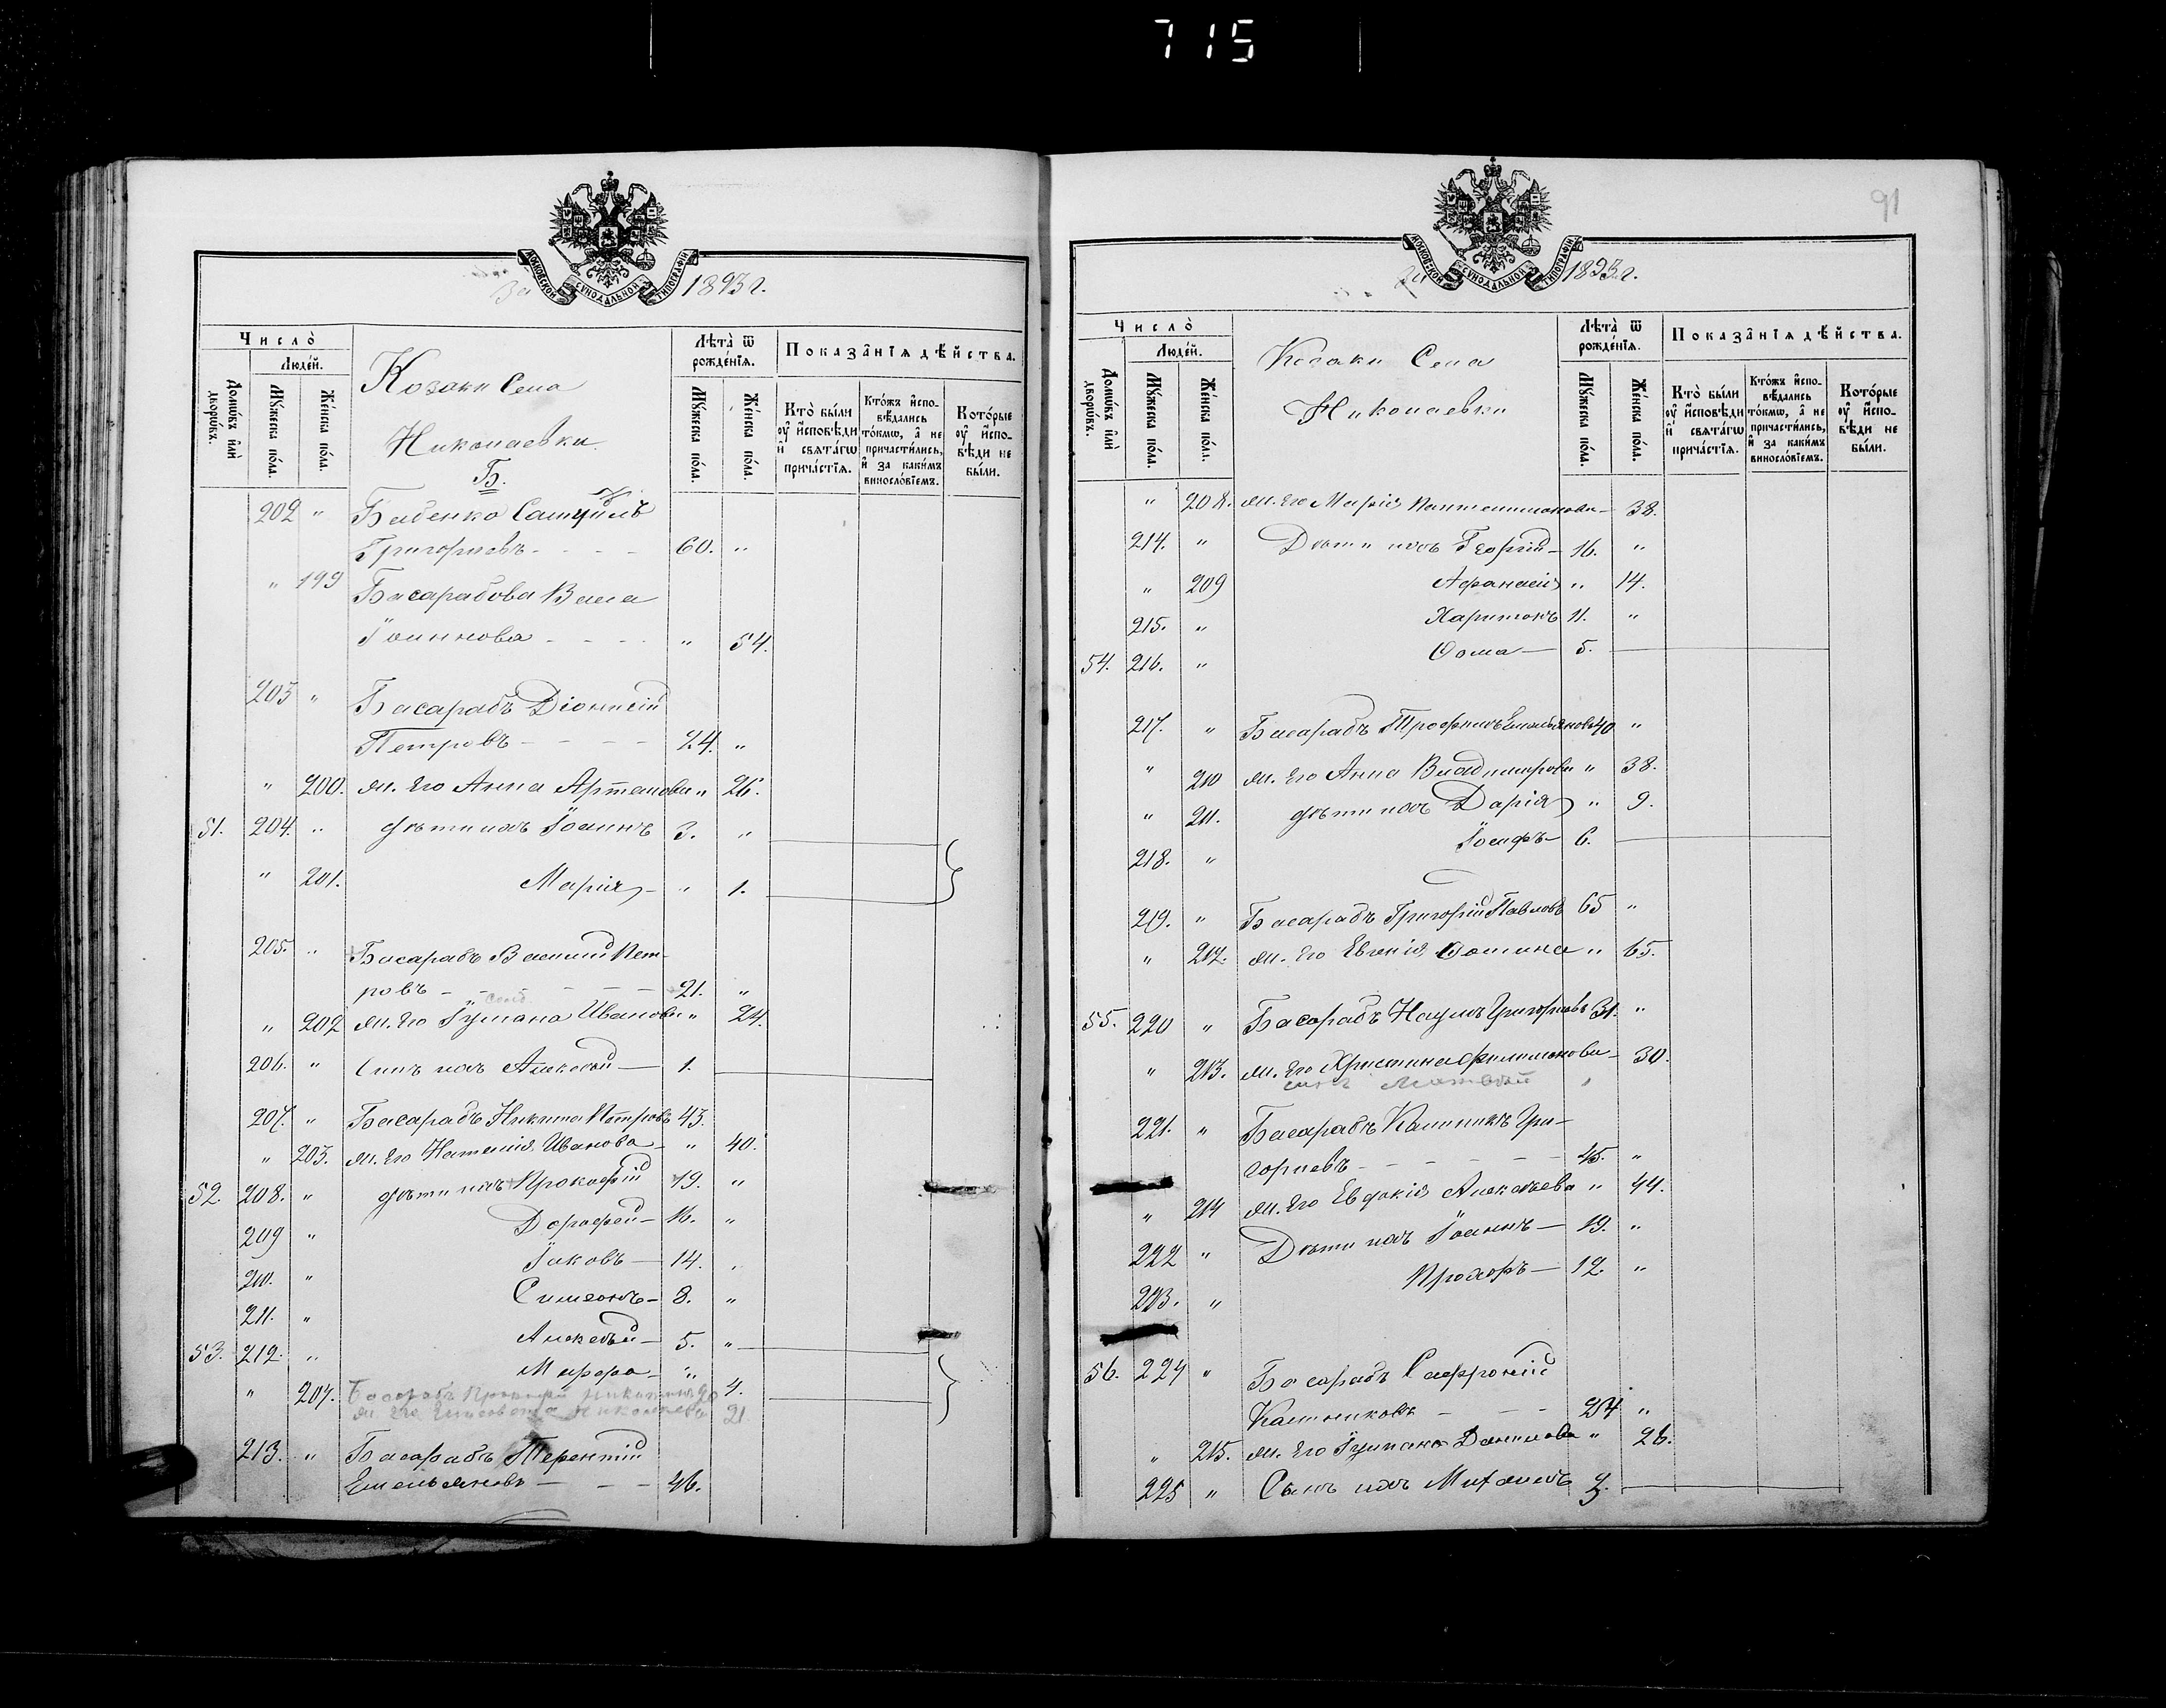 715
МОСКОВСКОЙ СѴНОДАЛЬНОЙ ТИПОГРАФІИ
За 1893 г.
Число̀
Люде́й.
Домѡ́въ и҆лѝ дворѡ́въ.
Мꙋ́жеска по́ла.
Же́нска по́ла.
Козаки Села
Николаевки
Б.
Лѣ́та ѿ рожде́нїѧ.
Мꙋ́жеска по́ла.
Же́нска по́ла.
Показа̂нїѧ дѣ́йства.
Кто̀ бы́ли оу҆ и҆сповѣди и҆ свѧта́гѡ прича́стїѧ.
Кто́жъ и҆спо-вѣдались то́кмѡ, а҆ не причасти́лись, и҆ за каки́мъ винословїемъ.
Кото́рые оу҆ и҆спо-вѣди не бы́ли.
202 " Бабенко Самуилъ
Григорьевъ - - - - 60. "
" 199 Басарабова Васса
Іоаннова - - - - " 54.
203 " Басарабъ Діонисій
Петровъ - - - - 24. "
" 200. ж. его Анна Артемова " 26.
51. 204. " дѣти ихъ Іоаннъ 3. "
" 201. Марія - " 1.
205. " Басарабъ Василій Пет-
ровъ - - - - 21. "
" 202 ж. его Іуліана Иванова " 24.
206. " Сынъ ихъ Алексѣй — 1.
207. " Басарабъ Никита Петровъ 43.
" 203. ж. его Наталія Иванова - " 40.
52. 208. " дѣти ихъ Прокофій 19. "
209 " Дорофей - 16. "
210. " Іаковъ — 14. "
211. " Симеонъ - 8. "
53. 212. " Алексѣй - 5. "
" 204. Марфа - " 4.
Басарабъ Прокофій Никитинъ 20
ж. его Елисавета Николаева 21
213. " Басарабъ Терентій
Емельяновъ - - - 46.
91
МОСКОВСКОЙ СѴНОДАЛЬНОЙ ТИПОГРАФІИ
За 1893 г.
Число̀
Люде́й.
Домѡ́въ и҆лѝ дворѡ́въ.
Мꙋ́жеска по́ла.
Же́нска по́ла.
Козаки Села
Николаевки
Лѣ́та ѿ рожде́нїѧ.
Мꙋ́жеска по́ла.
Же́нска по́ла.
Показа̂нїѧ дѣ́йства.
Кто̀ бы́ли оу҆ и҆сповѣди и҆ свѧта́гѡ прича́стїѧ.
Кто́жъ и҆спо-вѣдались то́кмѡ, а҆ не причасти́лись, и҆ за каки́мъ винословїемъ.
Кото́рые оу҆ и҆спо-вѣди не бы́ли.
" 208. ж. его Марія Пантелимонова - 38.
214. " Дѣти ихъ Георгій - 16. "
" 209 Афанасія " 14.
215. " Харитонъ 11. "
54. 216. " Ѳома — 5.
217. " Басарабъ Трофимъ Емельяновъ 40 "
" 210 ж. его Анна Владимирова " 38.
" 211. дѣти ихъ Дарія " 9.
218. " Іосифъ - 6.
219. " Басарабъ Григорій Павловъ 65 "
" 212. ж. его Евгенія Фомина " 65.
55. 220 " Басарабъ Наумъ Григорьевъ 31. "
" 213. ж. его Христина Филимонова - 30.
сынъ Матвѣй
221. " Басарабъ Калиникъ Гри-
горьевъ - - - - 45. "
" 214 ж. его Евдокія Алексѣева " 44.
222 " Дѣти ихъ Іоаннъ — 19. "
223. " Прохоръ — 12. "
56. 224 " Басарабъ Сафроній
Калениковъ - - - 24 "
" 215. ж. его Іуліана Данилова " 26.
225 " Сынъ ихъ Михаилъ 3.